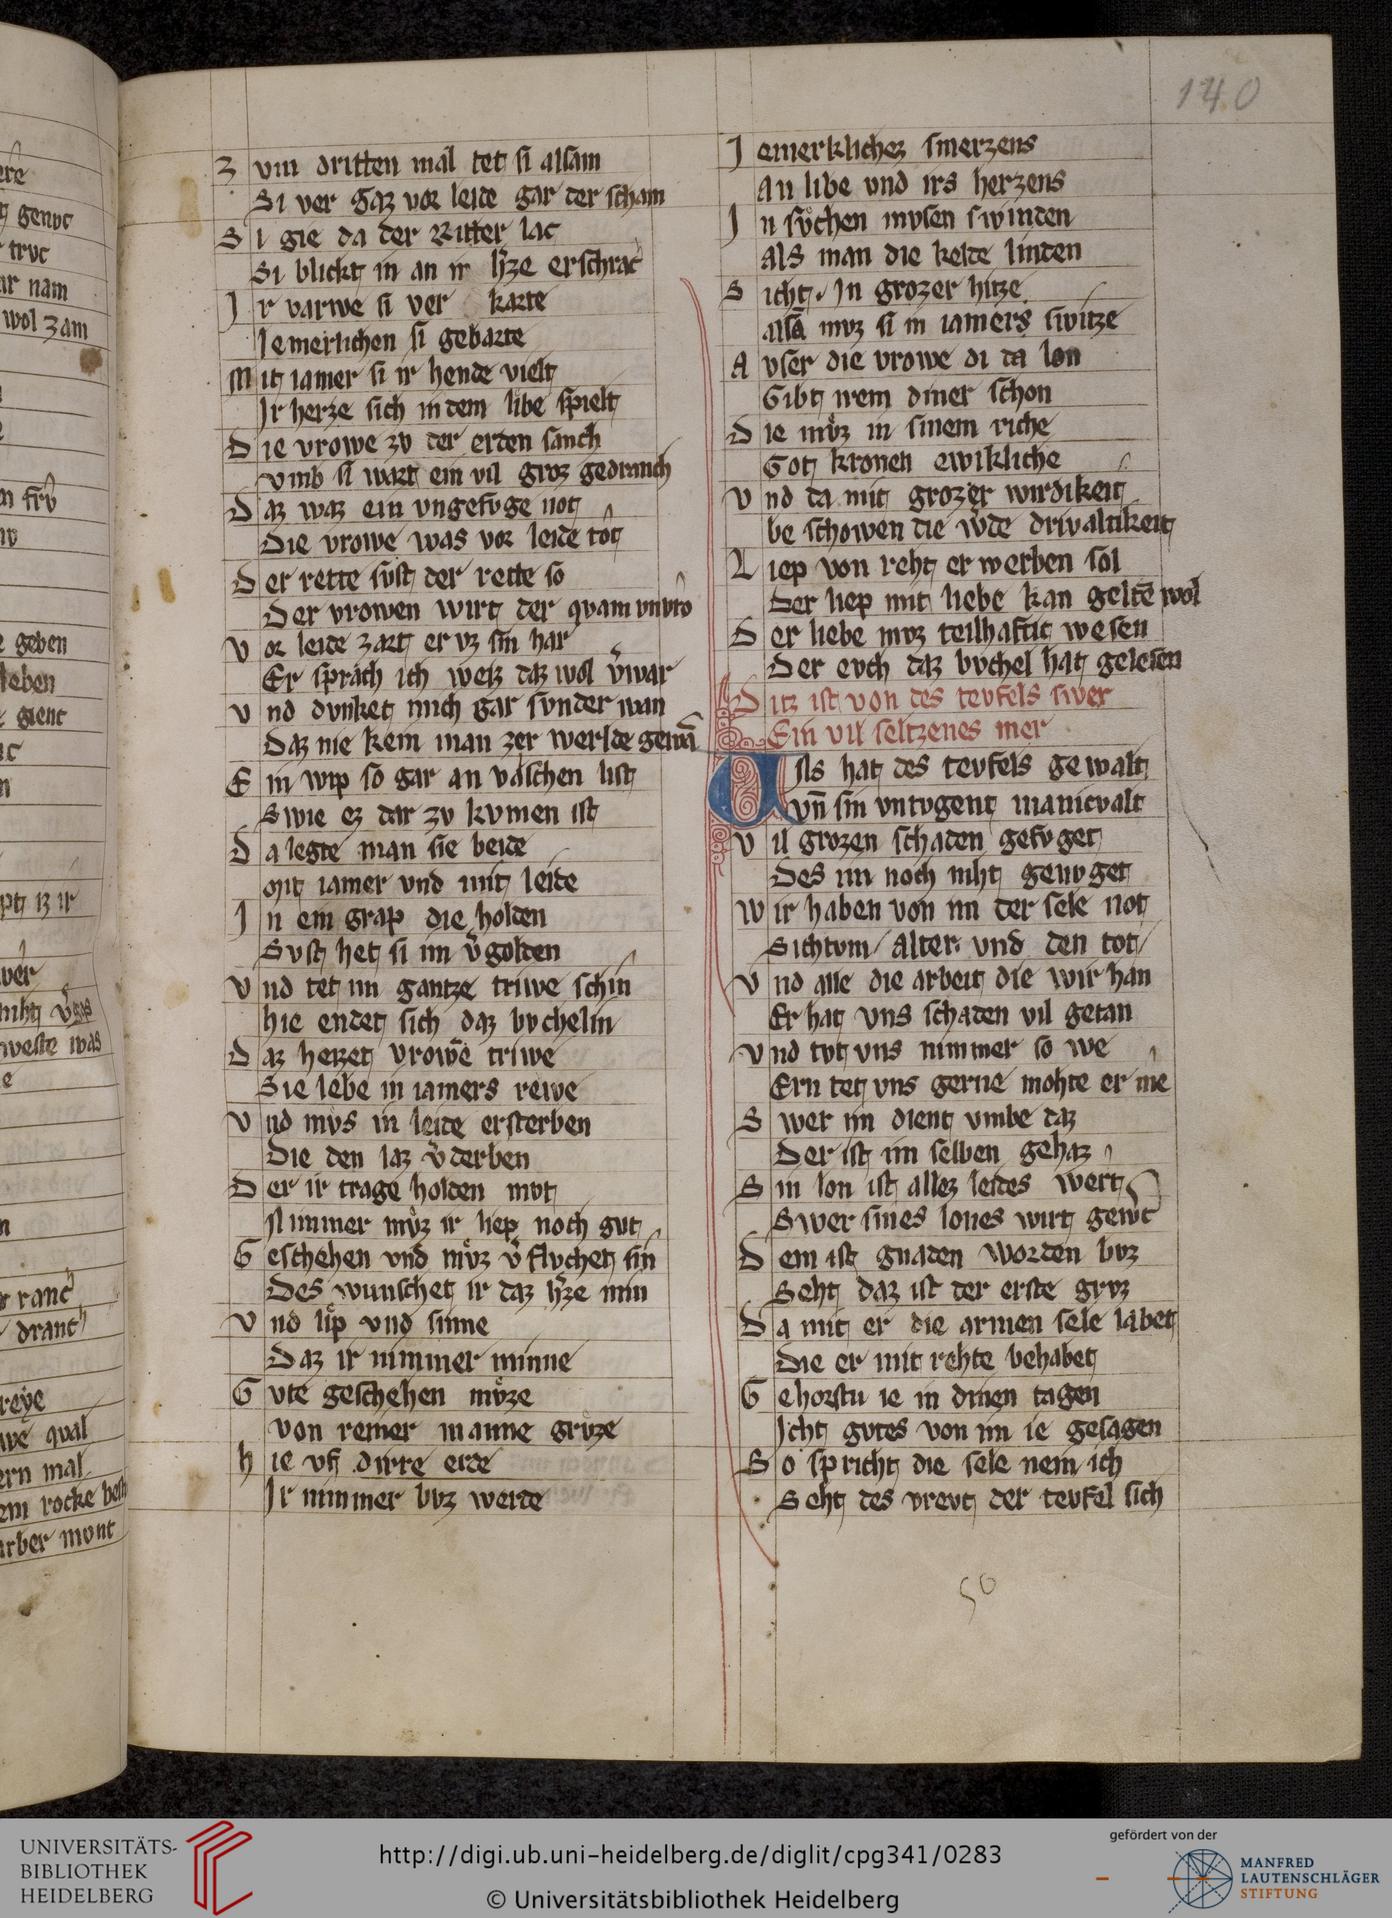 140
Z vm dritten mal tet si alsam
Si ver gaz vor leide gar der scham
S i gie da der Ritter lac
Si blickt in an ir h͛ze erschrac
I r varwe si ver karte
Iemerlichen si gebarte
M it iamer si ir hende vielt
Ir herze sich in dem libe spielt
D ie vrowe zv der erden sanch
vmb si wart ein vil groz gedranch
D az waz ein vngefvge not
Die vrowe was vor leide tot
D er rette svst der rette so
Der vrowen wirt der qvam vnvro
V or leide zart er vz sin har
Er sprach ich weiz daz wol v͛war
V nd dvnket mich gar svnder wan
Daz nie kem man zer werlde gewā
E in wip so gar an valschen list
Swie ez dar zv kvmen ist
D a legte man sie beide
Mit iamer vnd mit leide
I n ein grap die holden
Svst het si im v͛golden
V nd tet im gantze triwe schin
hie endet sich daz bvchelin
D az heizet vrowē triwe
Sie lebe in iamers rewe
V nd mvs in leide ersterben
Die den laz v͛derben
D er ir trage holden mvt
Nimmer mvͦz ir liep noch gvt
G eschehen vnd mvͦz v͛flvchet sin
Des wunschet ir daz h͛ze min
V nd lip vnd sinne
Daz ir nimmer minne
G vte geschehen mvͦze
von reiner manne grvͦze
h ie vf dirre erde
Ir nimmer bvz werde
I emerkliches smerzens
An libe vnd irs herzens
I n svͦchen mvsen swinden
Als man die kelde linden
S icht. In grozer hitze
alsā mvz si in iamers switze
A vser die vrowe di da lon
Gibt irem diner schon
D ie mvͦz in sinem riche
Got kronen ewikliche
V nd da mit grozer wirdikeit
be schowen die w͛de drivaltikeit
L iep von reht er werben sol
Der liep mit liebe kan geltē wol
D er liebe mvz teilhaftic wesen
Der evch daz bvchel hat gelesen
D itz ist von des tevfels swer
Ein vil seltzenes mer
Uils hat des tevfels gewalt
vn̄ sin vntvgent manicvalt
V il grozen schaden gefvget
Des im noch niht genvget
W ir haben von im der sele not
Sichtvm/ Alter. vnd den tot/
V nd alle die arbeit die wir han
Er hat vns schaden vil getan
V nd tvt vns nimmer so we
Ern tet vns gerne mohte er me
S wer im dient vmbe daz
Der ist im selben gehaz
S in lon ist allez leides wert
Swer sines lones wirt gew͛t
D em ist gnaden worden bvz
Seht daz ist der erste grvz
D a mit er die armen sele labet
Die er mit rehte behabet
G ehorstu ie in dinen tagen
Icht gvtes von im ie gesagen
S o spricht die sele nein ich
Seht des vrevt der tevfel sich
50
UNIVERSITÄTS-
BIBLIOTHEK
HEIDELBERG
http://digi.ub.uni-heidelberg.de/diglit/cpg341/0283
© Universitätsbibliothek Heidelberg
gefördert von der
MANFRED
LAUTENSCHLÄGER
STIFTUNG